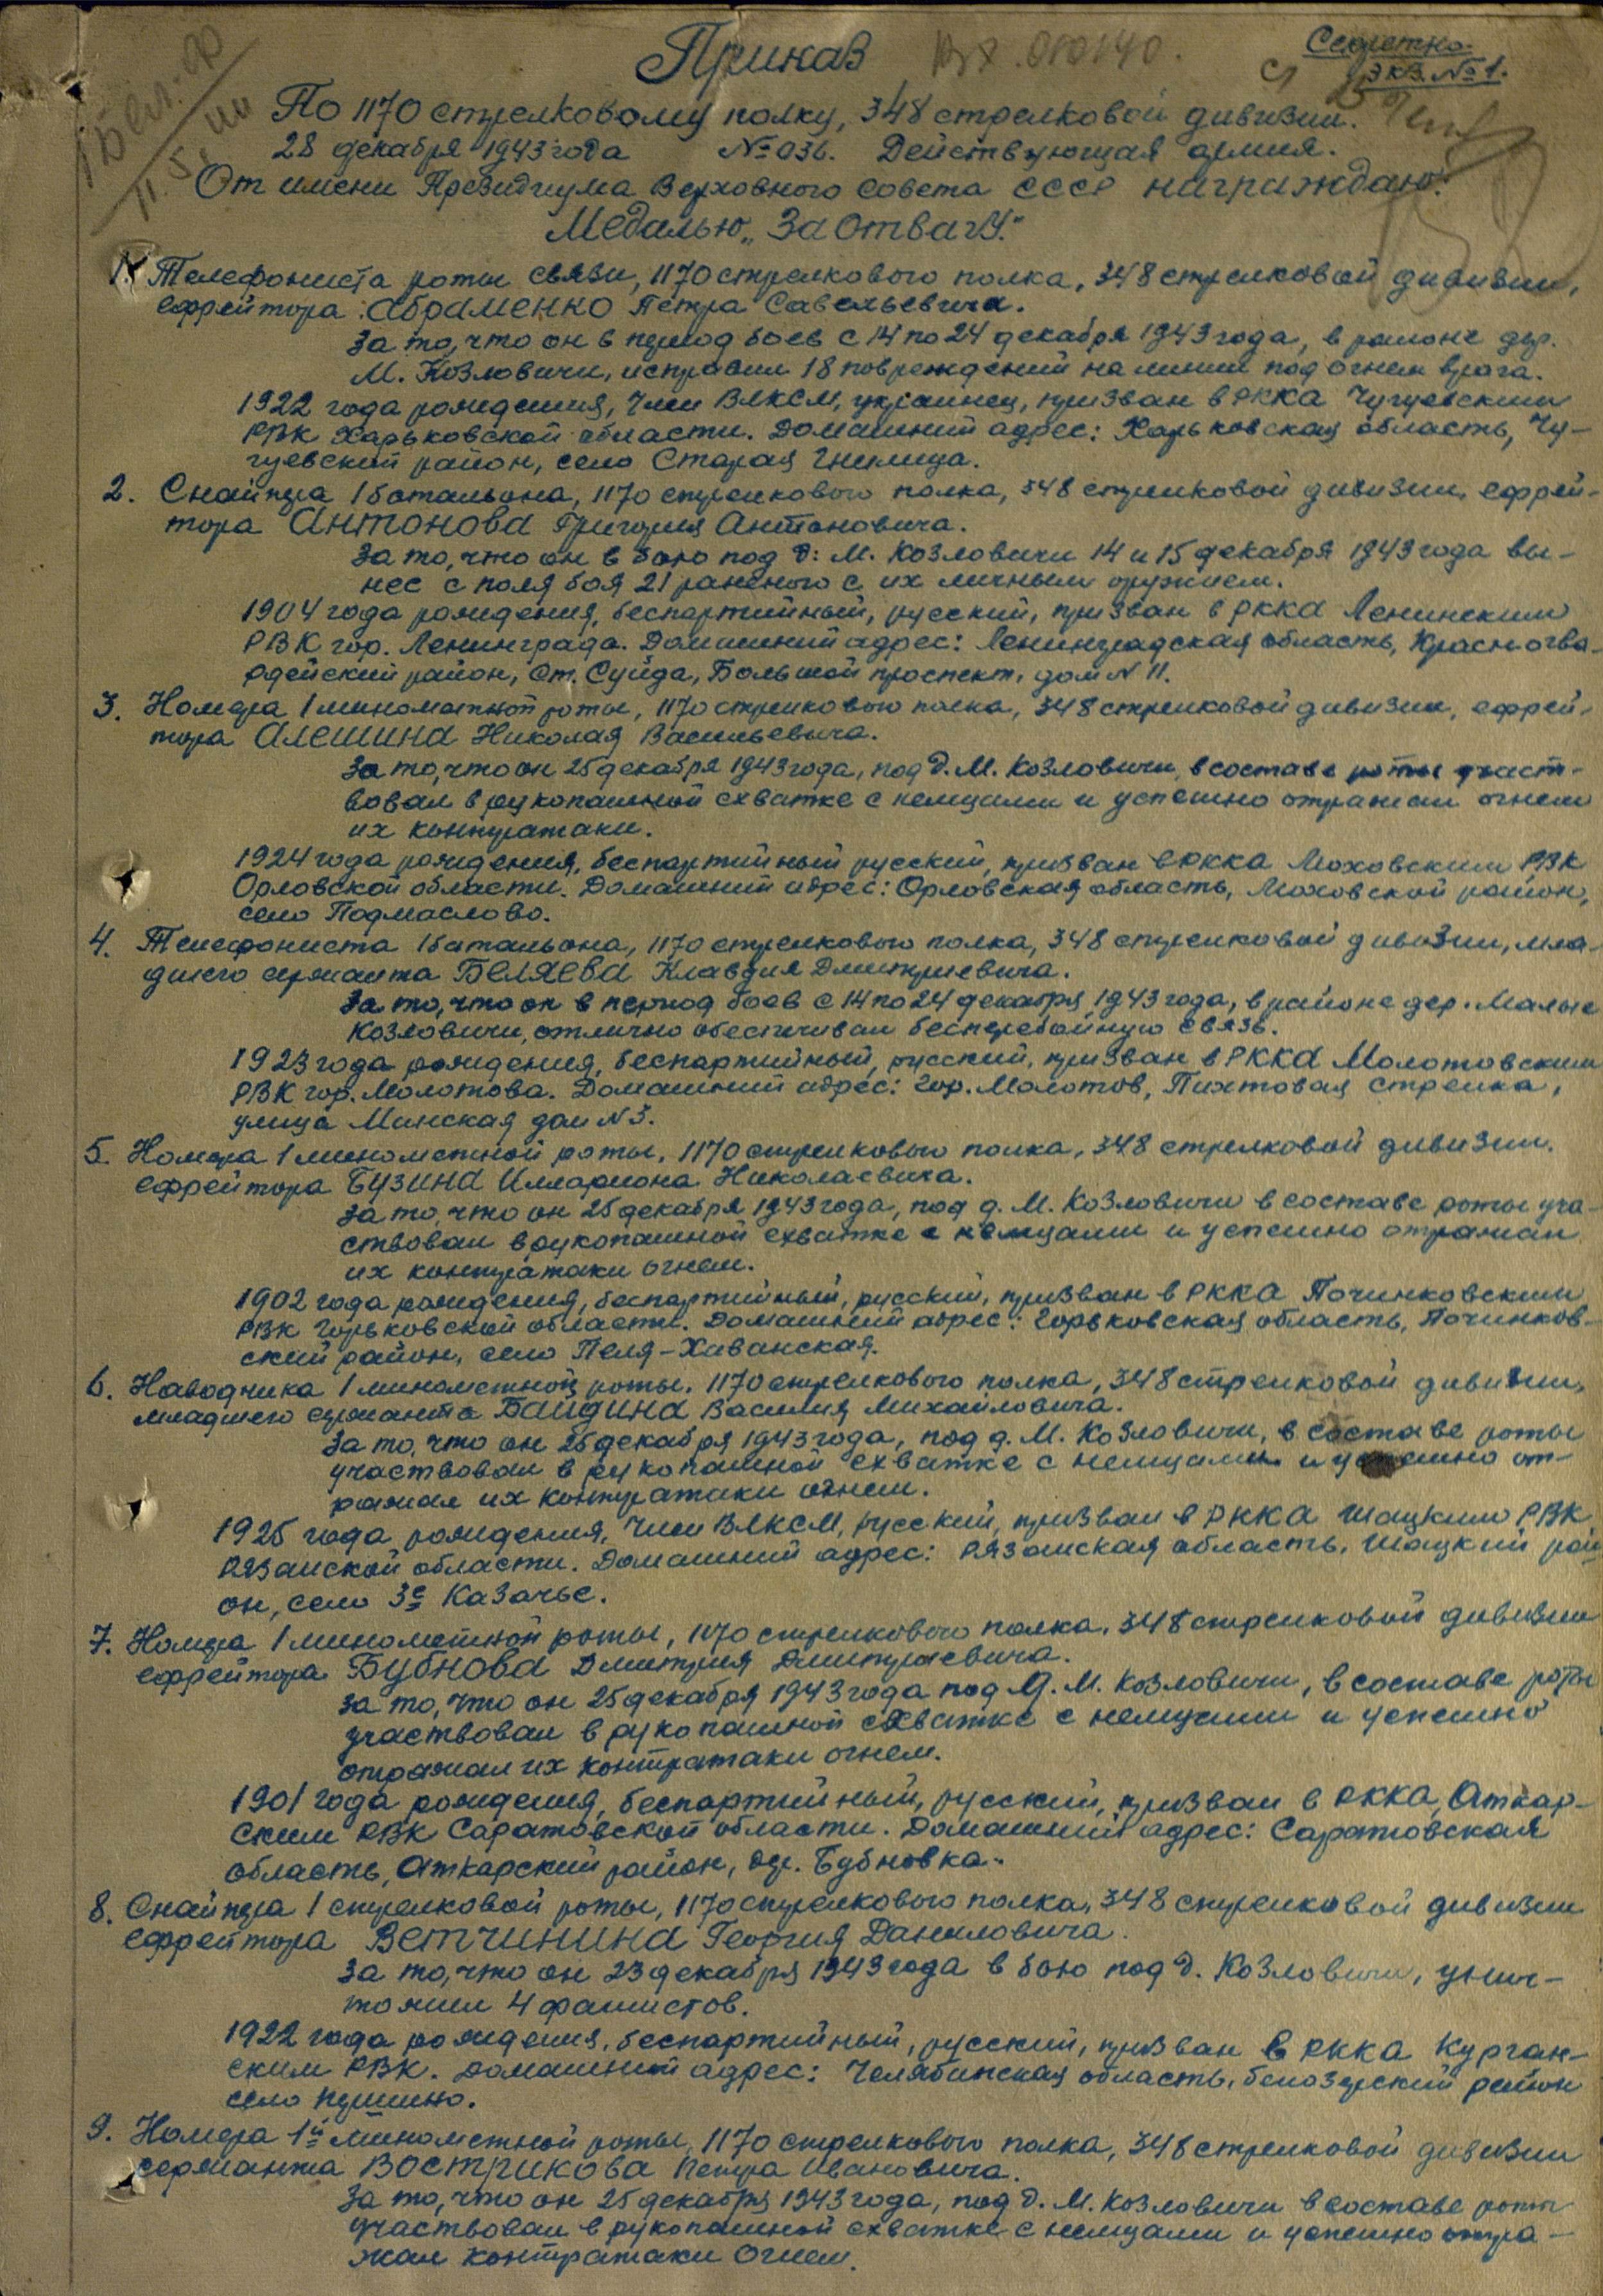 Секретно.
Экз. №1.
Приказ
По 1170 стрелковому полку, 348 стрелковой дивизии.
28 декабря 1943 года №036. Действующая армия.
От имени Президиума Верховного Совета СССР награждаю:
Медалью „За Отвагу."
1. Телефониста роты связи, 1170 стрелкового полка, 348 стрелковой дивизии,
ефрейтора Абраменко Петра Савельевича.
За то, что он в период боев с 14 по 24 декабря 1943 года, в районе дер.
М. Козловичи, исправил 18 повреждений на линии под огнем врага.
1922 года рождения, член ВЛКСМ, украинец, призван в РККА Чугуевским
РВК Харьковской области. Домашний адрес: Харьковская область, Чу-
гуевский район, село Старая Гнилица.
2. Снайпера 1 батальона, 1170 стрелкового полка, 348 стрелковой дивизии, ефрей-
тора Антонова Григория Антоновича.
За то, что он в бою под д: М. Козловичи 14 и 15 декабря 1943 года вы-
нес с поля боя 21 раненого с их личным оружием.
1904 года рождения, беспартийный, русский, призван в РККА Ленинским
РВК гор. Ленинграда. Домашний адрес: Ленинградская область, Красногва-
рдейский район, ст. Суйда, Большой проспект, дом N 11.
3. Номера 1 минометной роты, 1170 стрелкового полка, 348 стрелковой дивизии, ефрей-
тора Алешина Николая Васильевича.
За то, что он 25 декабря 1943 года, под д. М. Козловичи, в составе роты участ-
вовал в рукопашной схватке с немцами и успешно отражал огнем
их контратаки.
1924 года рождения, беспартийный русский, призван в РККА Моховским РВК
Орловской области. Домашний адрес: Орловская область, Моховской район,
село Подмаслово.
4. Телефониста 1 батальона, 1170 стрелкового полка, 348 стрелковой дивизии, мла-
дшего сержанта Беляева Клавдия Дмитриевича.
За то, что он в период боев с 14 по 24 декабря 1943 года, в районе дер. Малые
Козловичи, отлично обеспечивал бесперебойную связь.
1923 года рождения, беспартийный, русский, призван в РККА Молотовским
РВК гор. Молотова. Домашний адрес: гор. Молотов, Пихтовая стрелка,
улица Минская дом N 3.
5. Номера 1 минометной роты, 1170 стрелкового полка, 348 стрелковой дивизии.
ефрейтора Бузина Иллариона Николаевича.
За то, что он 25 декабря 1943 года, под д. М. Козловичи в составе роты уча-
ствовал в рукопашной схватке с немцами и успешно отражал
их контратаки огнем.
1902 года рождения, беспартийный, русский, призван в РККА Починковским
РВК Горьковской области. Домашний адрес: Горьковская область, Починков-
ский район, село Пеля-Хованская.
6. Наводчика 1 минометной роты, 1170 стрелкового полка, 348 стрелковой дивизии,
младшего сержанта Байдина Василия Михайловича.
За то, что он 25 декабря 1943 года, под д. М. Козловичи, в составе роты
участвовал в рукопашной схватке с немцами и успешно от-
ражал их контратаки огнем.
1925 года рождения, член ВЛКСМ, русский, призван в РККА Шацким РВК
Рязанской области. Домашний адрес: Рязанская область, Шацкий рай
он, село 3е Казачье.
7. Номера 1 минометной роты, 1170 стрелкового полка, 348 стрелковой дивизии
ефрейтора Бубнова Дмитрия Дмитриевича.
За то, что он 25 декабря 1943 года под д. М. Козловичи, в составе роты
участвовал в рукопашной схватке с немцами и успешно
отражал их контратаки огнем.
1901 года рождения, беспартийный, русский, призван в РККА, Аткар-
ским РВК Саратовской области. Домашний адрес: Саратовская
область, Аткарский район, дер. Бубновка.
8. Снайпера 1 стрелковой роты, 1170 стрелкового полка, 348 стрелковой дивизии
ефрейтора Ветчинина Георгия Даниловича.
За то, что он 23 декабря 1943 года в бою под д. Козловичи, унич-
тожил 4 фашистов.
1922 года рождения, беспартийный, русский, призван в РККА Курган-
ским РВК. Домашний адрес: Челябинская область, Белозерский район
село
9. Номера 1й минометной роты, 1170 стрелкового полка, 348 стрелковой дивизии
сержанта Вострикова Петра Ивановича.
За то, что он 25 декабря 1943 года, под д. М. Козловичи в составе роты
участвовал в рукопашной схватке с немцами и успешно отра-
жал контратаки огнем.